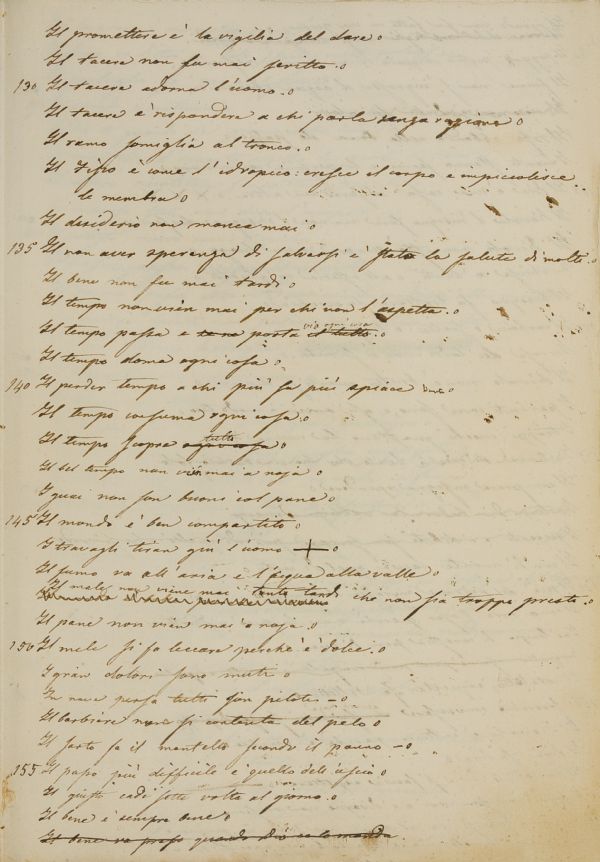 Il promettere è la vigilia del dare o
Il tacere non fu mai scritto. o
130 Il tacere adorna l'uomo. o
Il tacere è rispondere a chi parla senza ragione o
Il ramo somiglia al tronco. o
Il Fisco è come l'idropico: cresce il corpo e impiccolisce
le membra o
Il desiderio non manca mai o
135 Il non aver speranza di salvarsi è stato la salute di molti. o
Il bene non fu mai tardi o
Il tempo non vien mai per chi non l'aspetta. o
Il tempo passa e porta via ogni cosa il tutto. o
Il tempo doma ogni cosa o
140 Il perder tempo a chi più sa più spiace o
Il tempo consuma ogni cosa. o
Il tempo scopre ogni cosa tutto o
Il bel tempo non vien mai a noja o
I guai non son buoni col pane o
145 Il mondo è ben compartito o
I travagli tiran giù l'uomo + o
Il fumo va all'aria e l'acqua alla valle o
Il male non viene mai tanto tardi che non sia troppo presto o
Il pane non vien mai a noja. o
150 Il mele si fa leccare perchè è dolce. o
I gran dolori sono muti o
In nave persa tutti son piloti – o
Il barbiere non si contenta del pelo o
Il sarto fa il mantello secondo il panno – o
155 Il passo più difficile è quello dell'uscio o
Il giusto cade sette volte al giorno. o
Il bene è sempre bene o
Il bene va preso quando Dio ce lo manda.